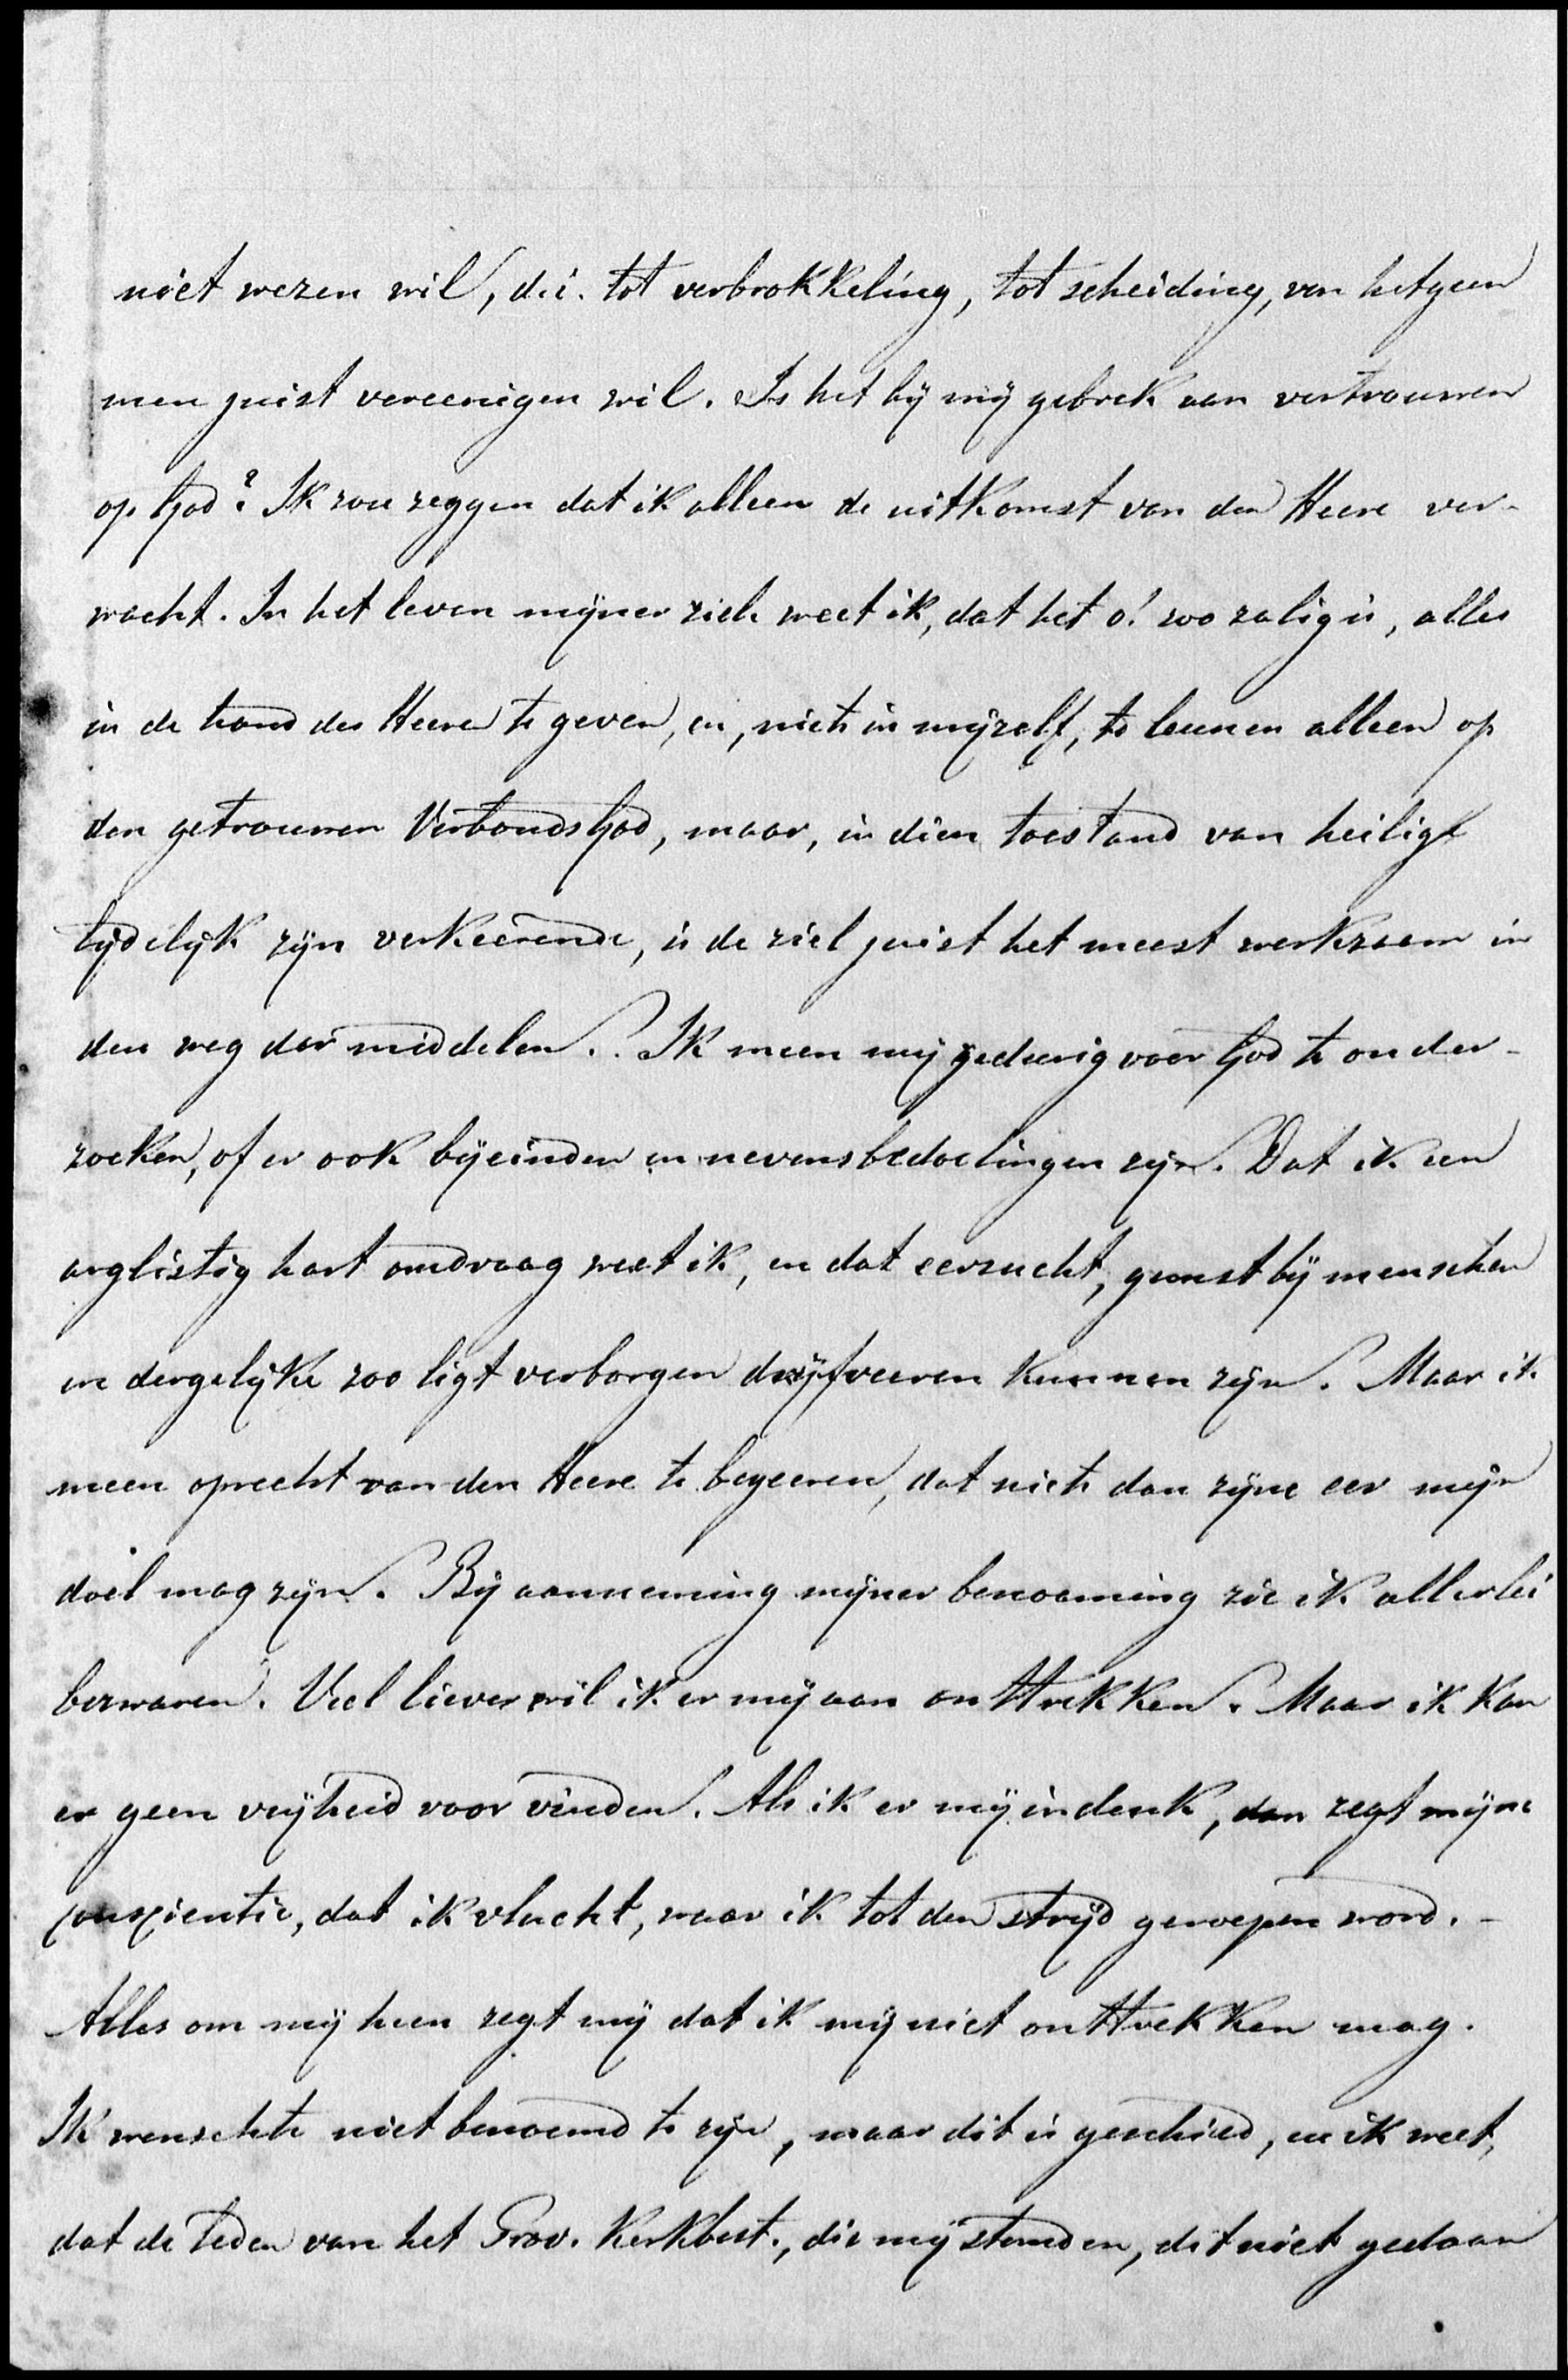 niet wezen wil, d.i. tot verbrokkeling, tot scheiding, van hetgeen
men juist vereenigen wil. Is het bij mij gebrek aan vertrouwen
op God? Ik zou zeggen dat ik alleen de uitkomst van den Heere ver-
wacht. In het leven mijner ziele weet ik, dat het o! zoo zalig is, alles
in de hand des Heere te geven, en, niets in mijzelf, te leunen alleen op
den getrouwen VerbondsGod, maar, in dien toestand van heilige
lijdelijk zijn verkeerende, is de ziel juist het meest werkzaam in
den weg der middelen. Ik meen mij gedurig voor God te onder-
zoeken, of er ook bijeinden en nevensbedoelingen zijn. Dat ik een
arglistig hart omdraag weet ik, en dat eerzucht, gunst bij menschen
en dergelijke zoo ligt verborgen drijfveeren kunnen zijn. Maar ik
meen oprecht van den Heere te begeeren, dat niets dan zijne eer mijn
doel mag zijn. Bij aanneming mijner benoeming zie ik allerlei
bezwaren. Veel liever wil ik er mij aan onttrekken. Maar ik kan
er geen vrijheid voor vinden. Als ik er mij indenk, dan zegt mijne
consciëntie, dat ik vlucht, waar ik tot den strijd geroepen word. -
Alles om mij heen zegt mij dat ik mij niet onttrekken mag.
Ik wenschte niet benoemd te zijn, maar dit is geschied, en ik weet,
dat de leden van het Prov. Kerkbest., die mij stemden, dit niet gedaan